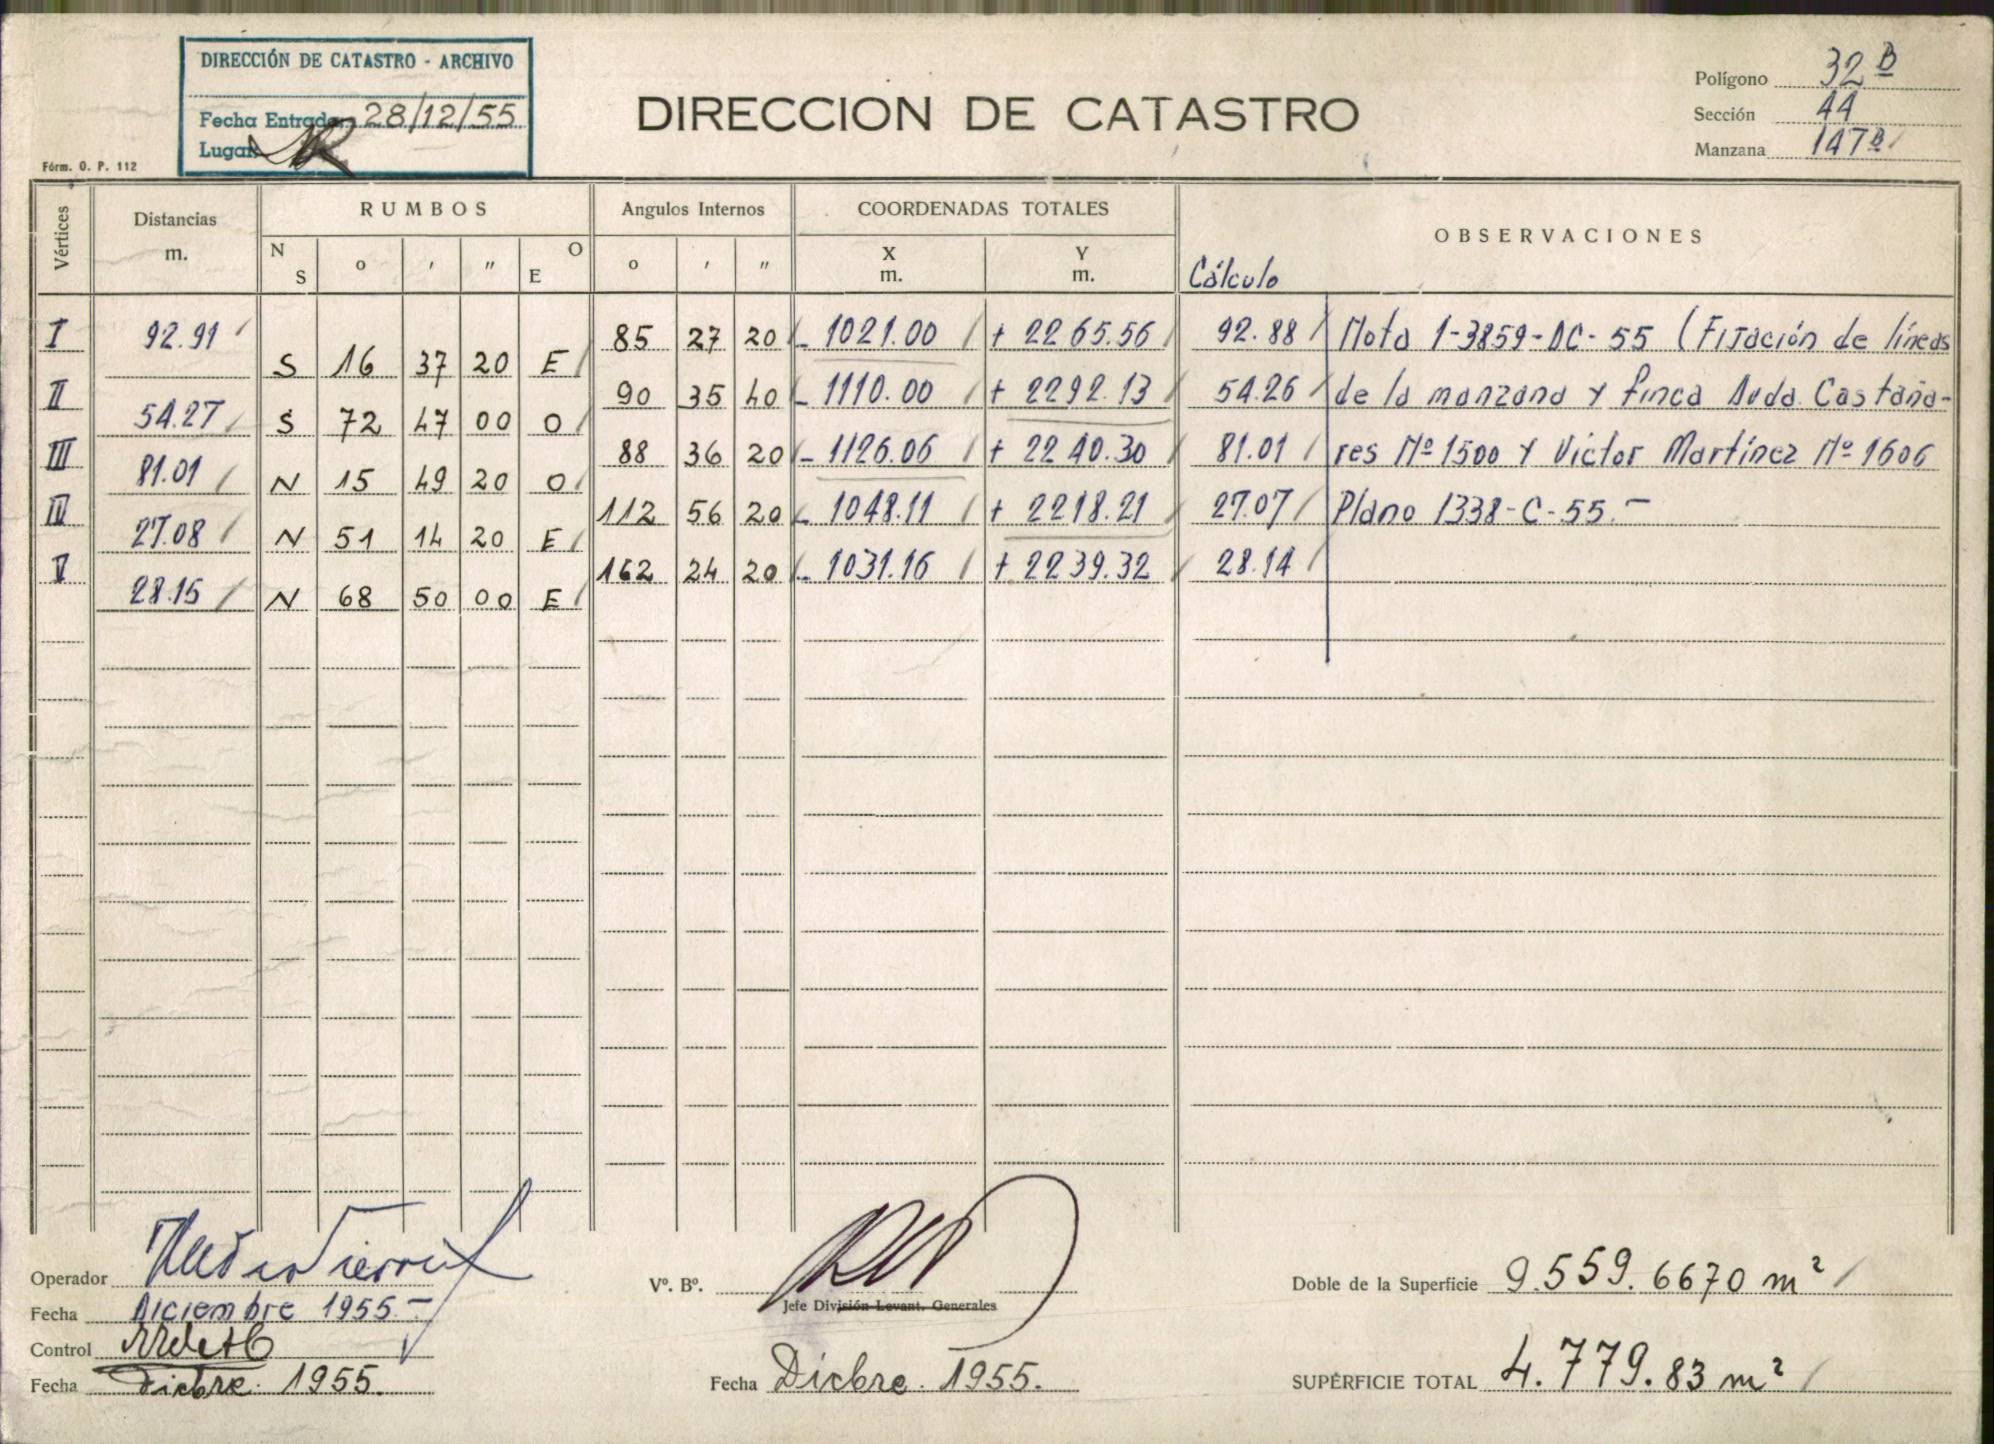 DIRECCIÓN DE CATASTRO - ARCHIVO
Fecha Entrada: 28/12/55
Lugar
Fórm. O. P. 112
DIRECCION DE CATASTRO
Polígono 32 B
Sección 44
Manzana 147 B
Vértices
Distancias
m.
RUMBOS
N S
o
'
"
E O
Angulos Internos
o ' "
COORDENADAS TOTALES
X
m.
Y
m.
OBSERVACIONES
Cálculo
I 85 27 20 - 1021.00 + 2265.56 92.88 Nota 1-3859-DC-55 (Fijación de líneas
92.91 S 16 37 20 E
II 90 35 40 - 1110.00 + 2292.13 54.26 de la manzana y finca Avda. Castaña-
54.27 S 72 47 00 O
III 88 36 20 - 1126.06 + 2240.30 81.01 res Nº 1500 y Victor Martínez Nº 1606
81.01 N 15 49 20 O
IV 112 56 20 - 1048.11 + 2218.21 27.07 Plano 1338-C-55.-
27.08 N 51 14 20 E
V 162 24 20 - 1031.16 + 2239.32 28.14
28.15 N 68 50 00 E
Operador
Fecha Diciembre 1955.-
Control
Fecha Dicbre. 1955.
Vº. Bº.
Jefe División Levant. Generales
Fecha Dicbre. 1955.
Doble de la Superficie 9.559.6670 m²
SUPERFICIE TOTAL 4.779.83 m²